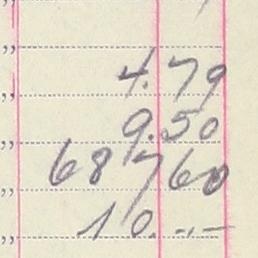 „
„ 4.79
„ 9.50
„ 68 760
„ 10.--